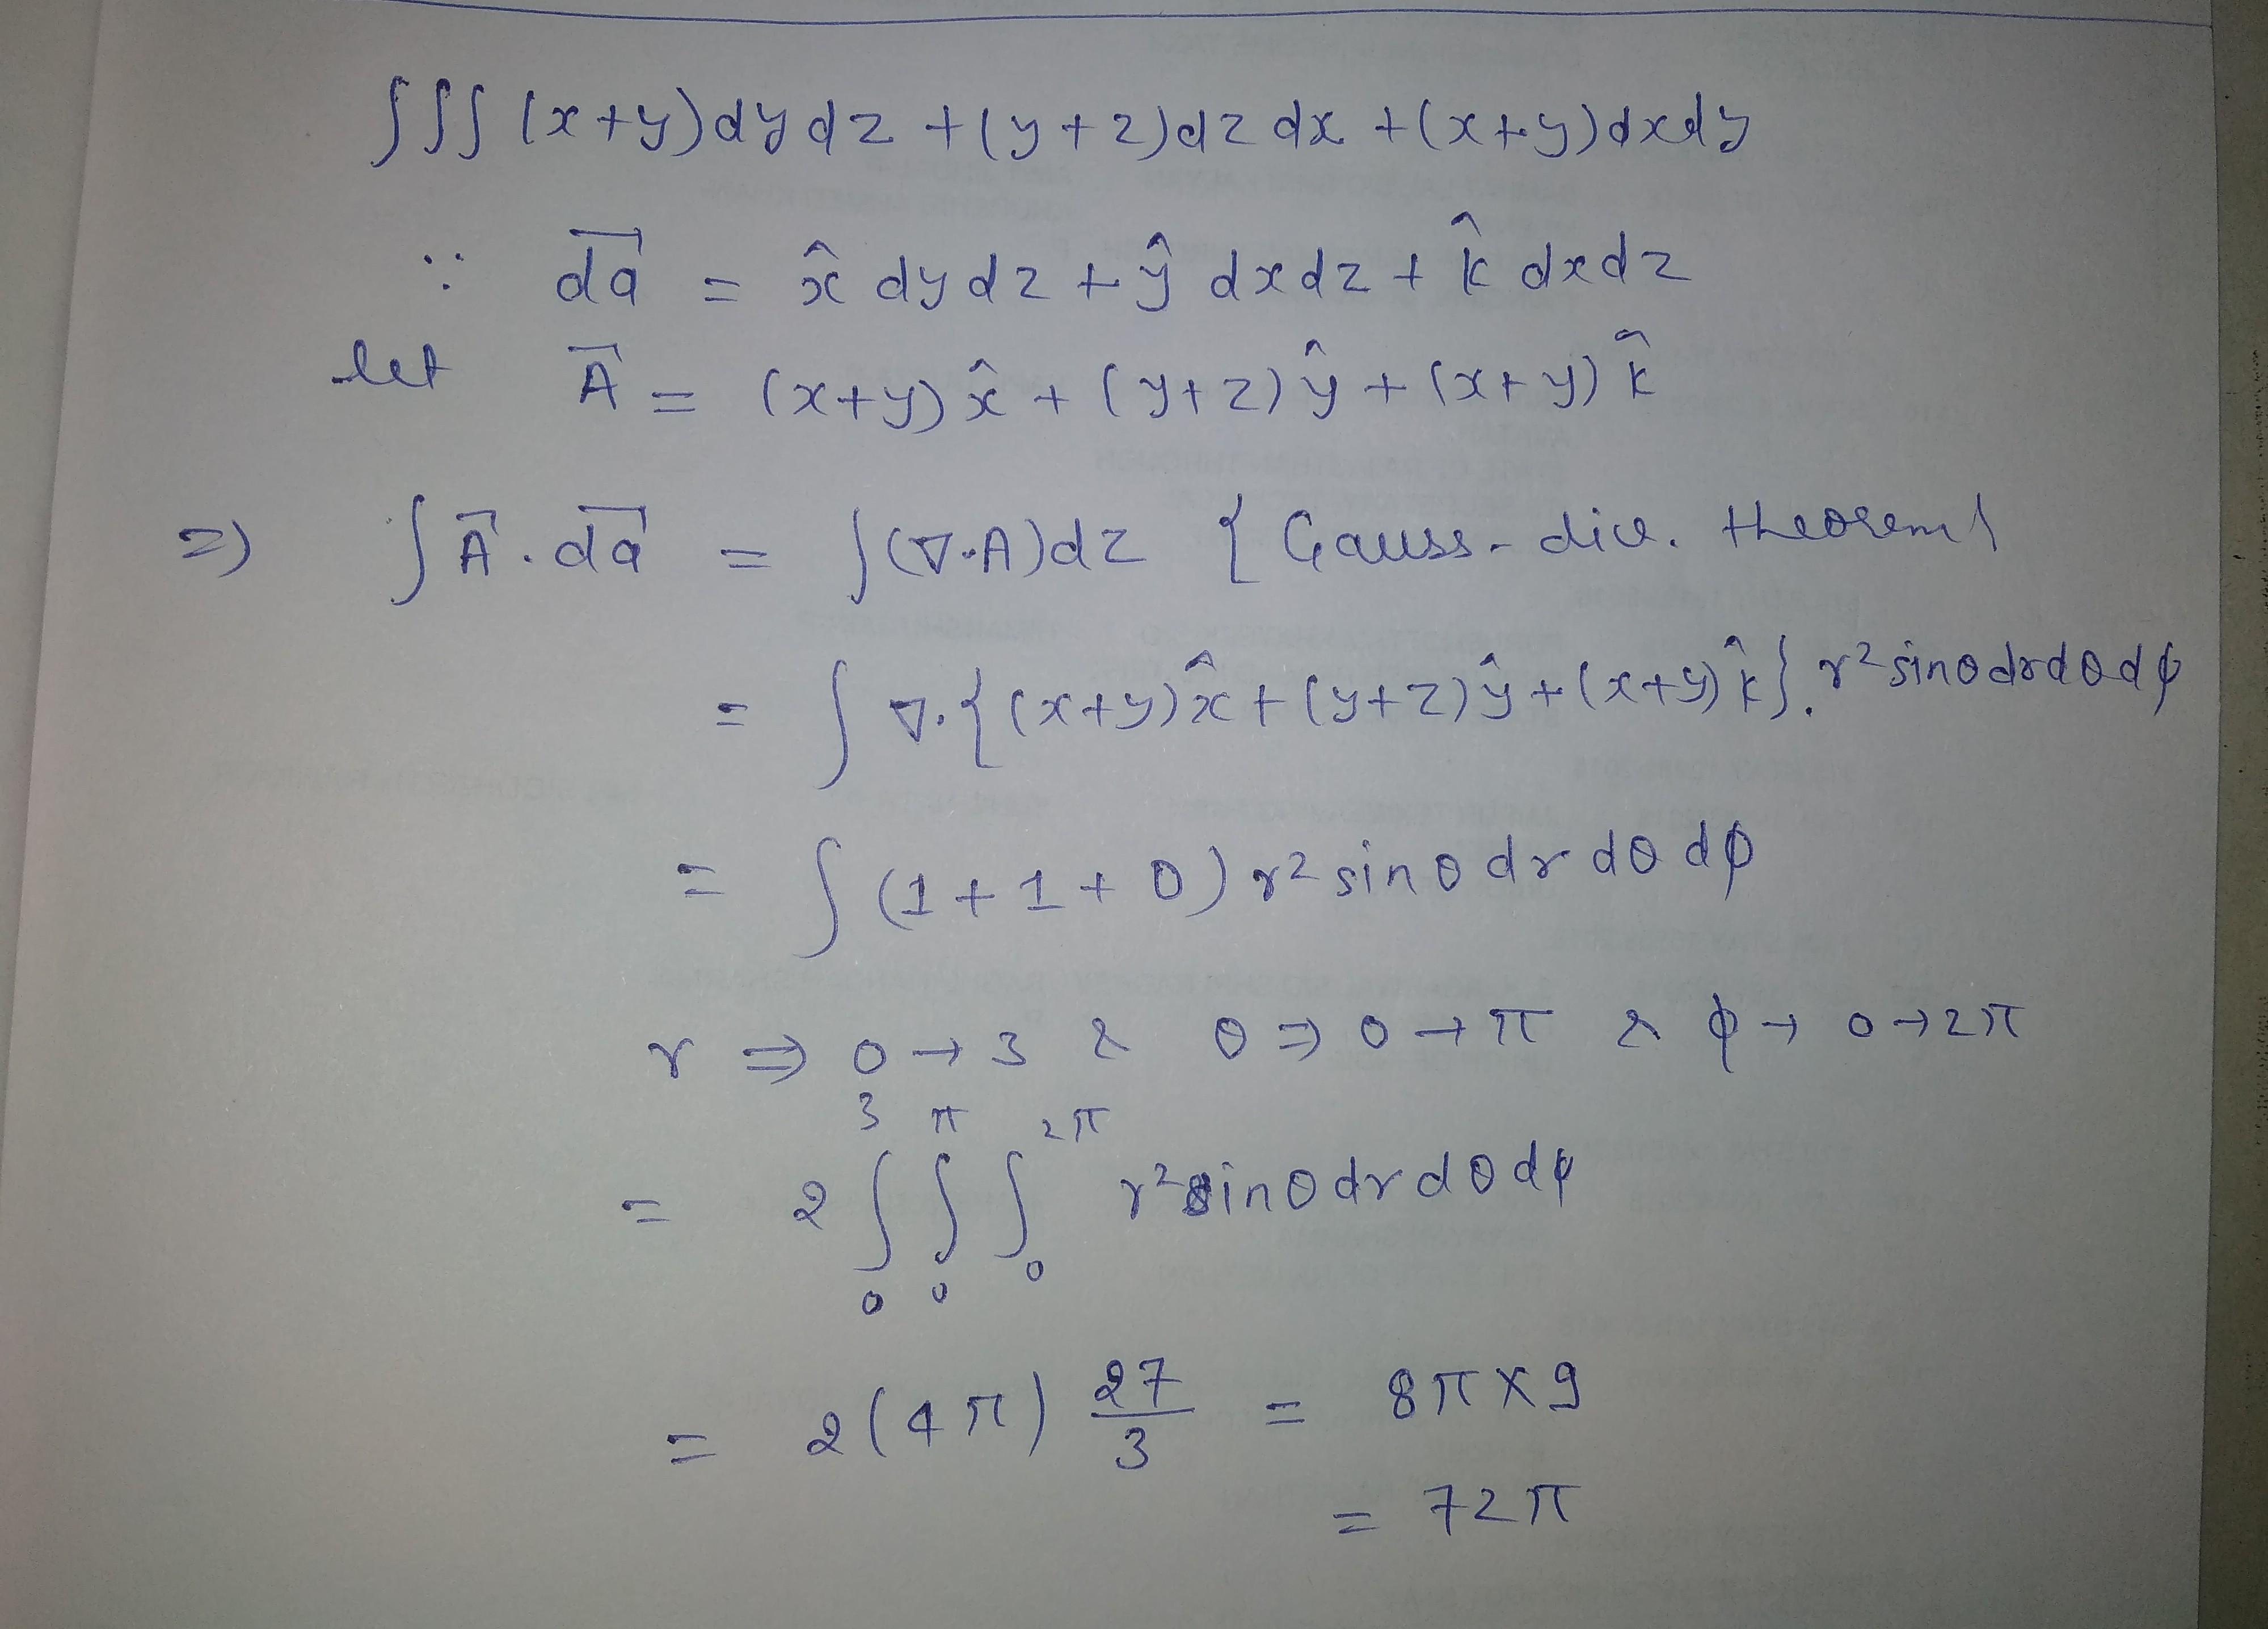 ∫∫∫ (x+y)dydz + (y+z)dzdx + (x+y)dxdy
∵ d⃗a = x̂ dydz + ŷ dxdz + k̂ dxdz
let A⃗ = (x+y)x̂ + (y+z)ŷ + (x+y)k̂
⇒ ∫A⃗.d⃗a = ∫(∇.A)dz { Gauss-div. theorem}
= ∫ ∇.{(x+y)x̂ + (y+z)ŷ + (x+y)k̂}. r² sinθ dr dθ dϕ
= ∫ (1+1+0) r² sinθ dr dθ dϕ
r ⇒ 0→3 & θ ⇒ 0→π & ϕ → 0→2π
= 2 ∫₀³ ∫₀^π ∫₀^2π r² sinθ dr dθ dϕ
= 2(4π) 27/3 = 8π×9
= 72π